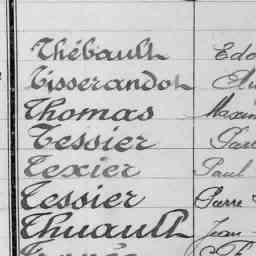 Thébault Edo
Tisserandot
Thomas Maxim
Tessier
Texier Paul
Tessier Pierre
Thuault Jean